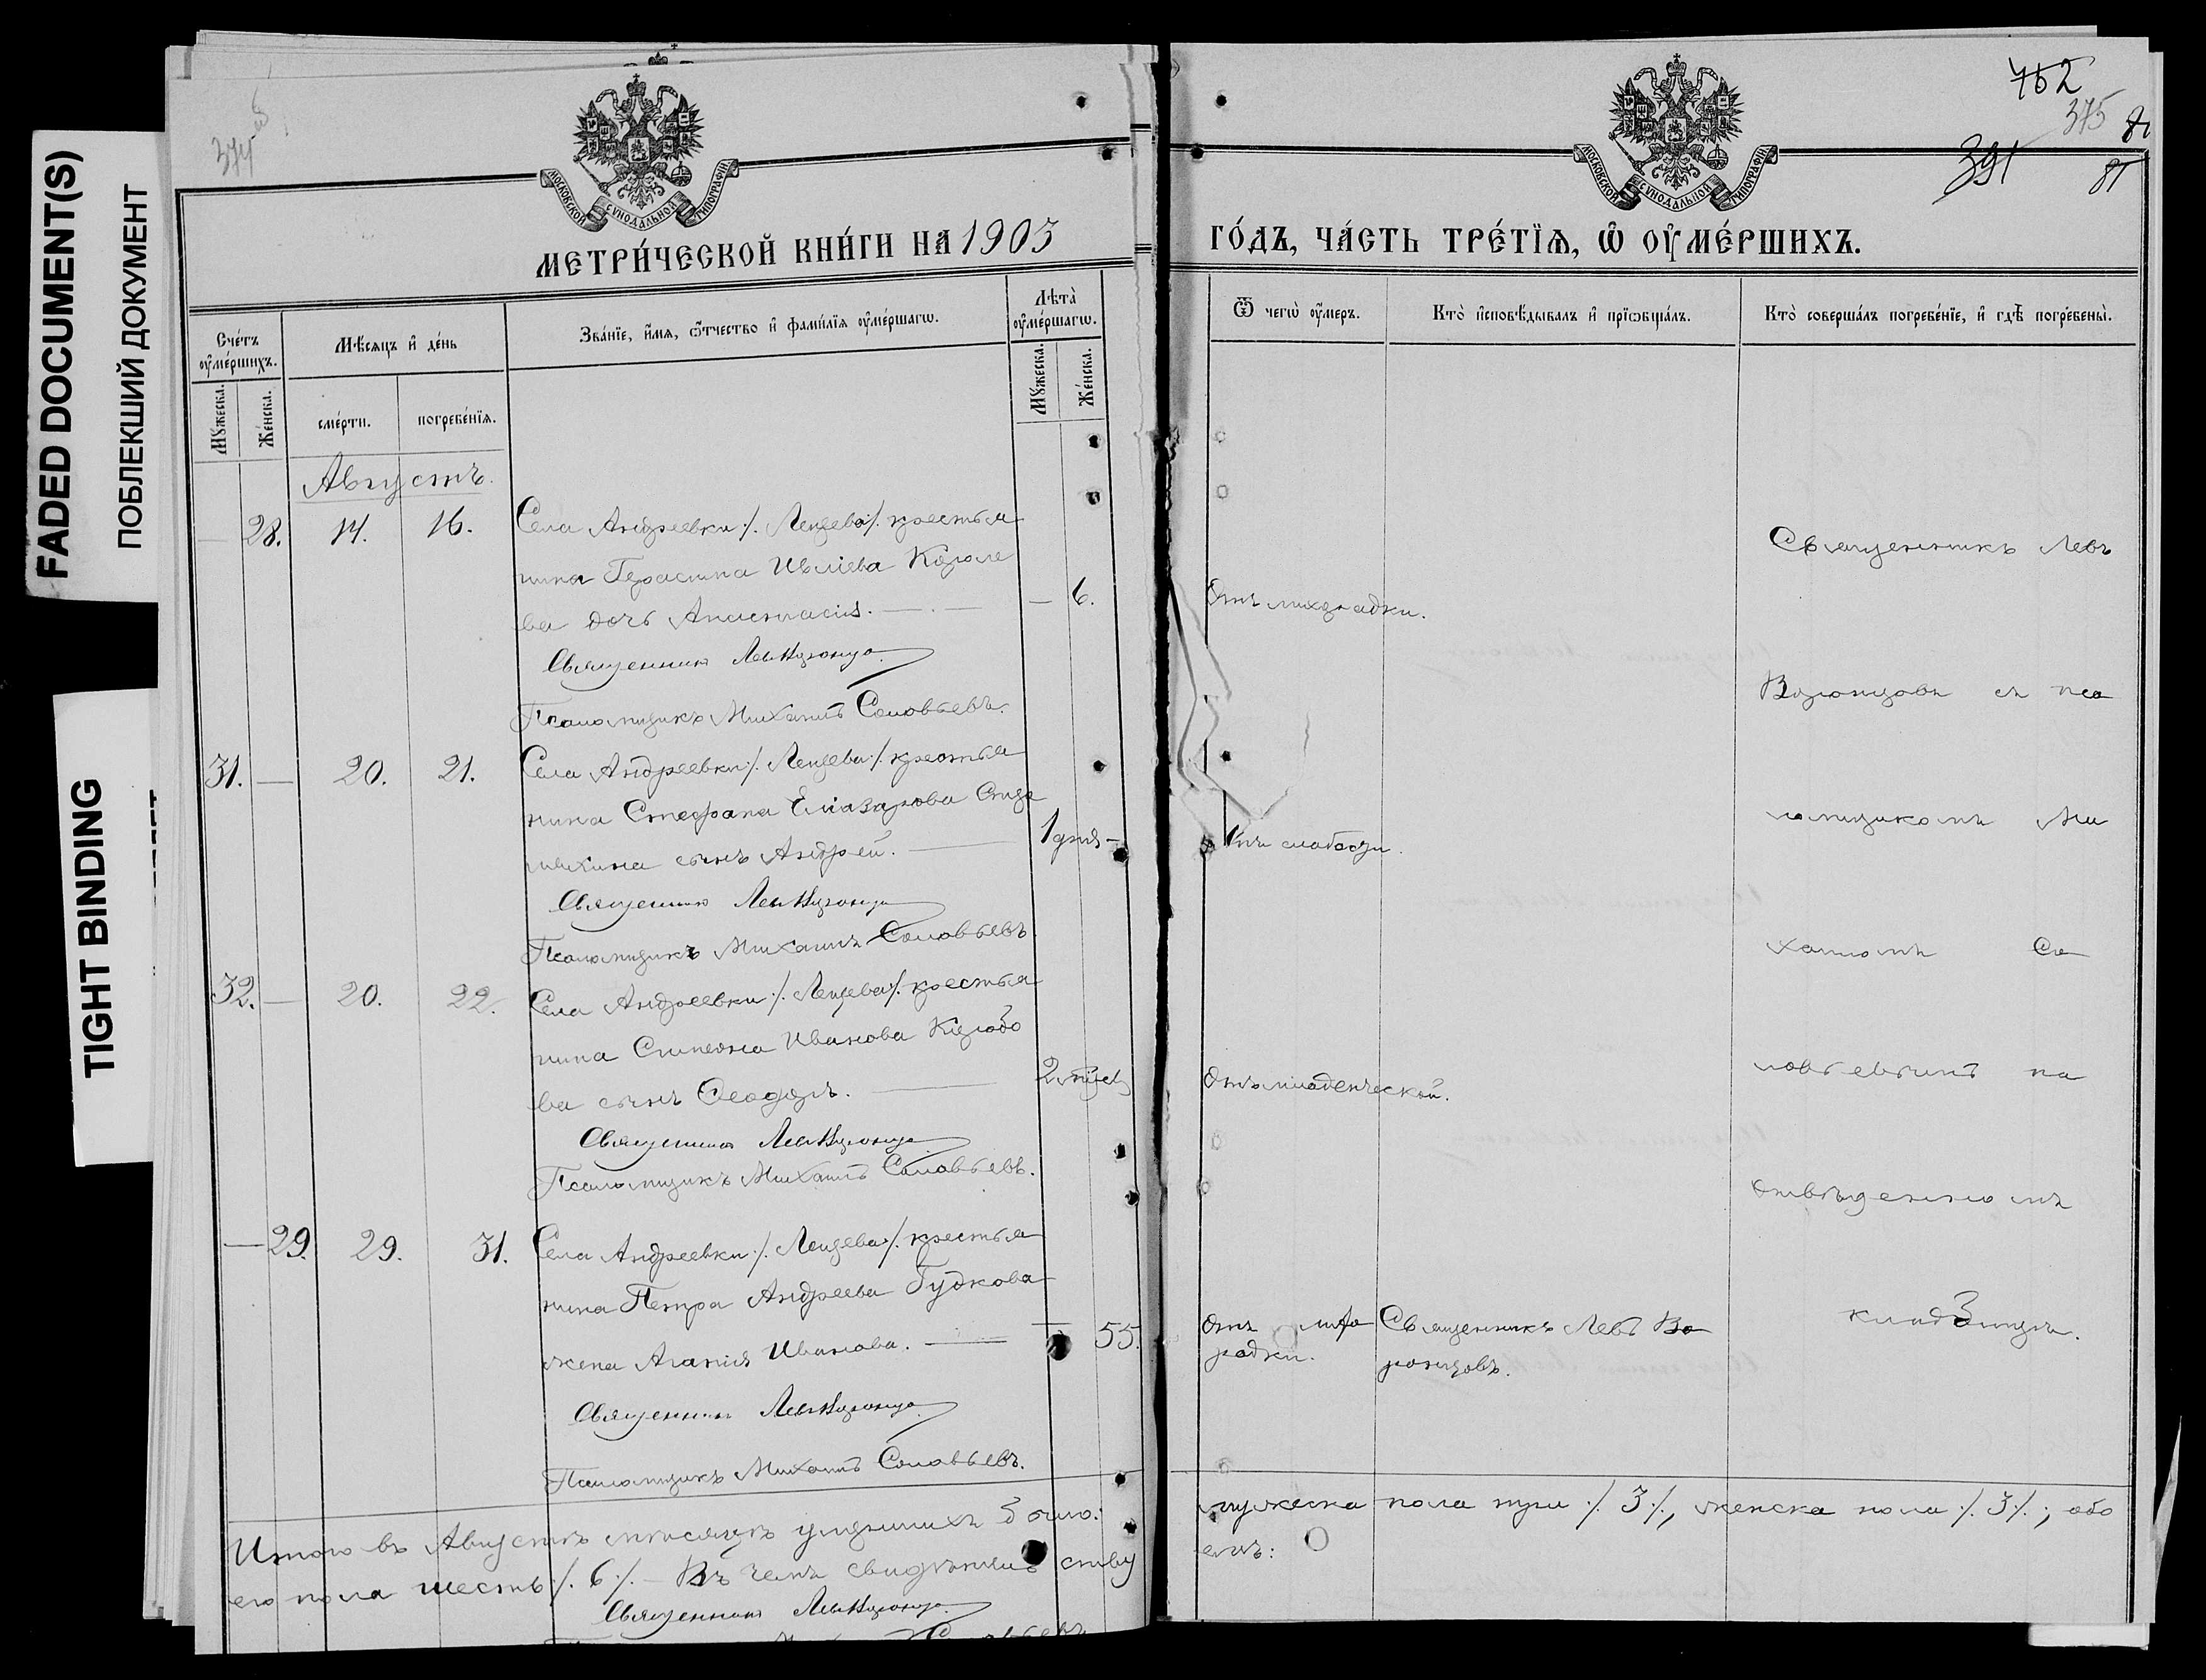 FADED DOCUMENT(S)
ПОБЛЕКШИЙ ДОКУМЕНТ
TIGHT BINDING
МОСКОВСКОЙ СѴНОДАЛЬНОЙ ТИПОГРАФІИ
МЕТРИ́ЧЕСКОЙ КНИ́ГИ НА 1903
Сче́тъ ᲂу҆ме́ршихъ.
Мꙋ́жеска.
Же́нска.
Мѣ́сяцъ и҆ де́нь
сме́рти.
погребе́нїя.
Зва́нїе, и҆́мя, ѻ҆́тчество и҆ фами́лїя ᲂу҆ме́ршагѡ.
Лѣта̀ ᲂу҆ме́ршагѡ.
Мꙋ́жеска.
Же́нска.
Августъ.
— 28. 14. 16. Села Андреевки /. Лещева /. крестья
нина Герасима Ивліева Короле
ва дочь Анастасія. — — 6.
Священникъ Левъ Воронцо
Псаломщикъ Михаилъ Соловьевъ.
31. — 20. 21. Села Андреевки /. Лещева /. крестья
нина Стефана Елиазарова
сынъ Андрей. — 1 дня —
Священникъ Левъ Воронцо
Псаломщикъ Михаилъ Соловьевъ
32. — 20. 22. Села Андреевки /. Лещева /. крестья
нина Симеона Иванова
ва сынъ Ѳеодоръ. — 2
Священникъ Левъ Воронцо
Псаломщикъ Михаилъ Соловьевъ.
— 29. 29. 31. Села Андреевки /. Лещева /. крестья
нина Петра Андреева Гудкова
жена Агапія Иванова. — 55.
Священникъ Левъ Воронцо
Псаломщикъ Михаилъ Соловьевъ.
Итого въ Августѣ мѣсяцѣ умершихъ было:
его пола шесть /. 6 /. — Въ чемъ свидѣтельству
Священникъ Левъ Воронцо
МОСКОВСКОЙ СѴНОДАЛЬНОЙ ТИПОГРАФІИ
752
375
391
81
ГО́ДЪ, ЧА́СТЬ ТРЕ́ТЇѦ, Ѡ҆ ОУ҆МЕ́РШИХЪ.
Ѿ чегѡ̀ ᲂу҆́меръ.
Кто̀ и҆сповѣ́дывалъ и҆ прїѡбща́лъ.
Кто̀ соверша́лъ погребе́нїе, и҆ гдѣ̀ погребены̀.
Священникъ Левъ
Отъ лихорадки.
Воронцовъ съ пса
ломщикомъ Ми
Отъ слабости.
хаиломъ Со
ловьевымъ на
Отъ младенческой.
отведенномъ
кладбищѣ.
Отъ лихо
радки.
Священникъ Левъ Во
ронцовъ.
мужеска пола три /. 3 /., женска пола /. 3 /.; обо
емъ: